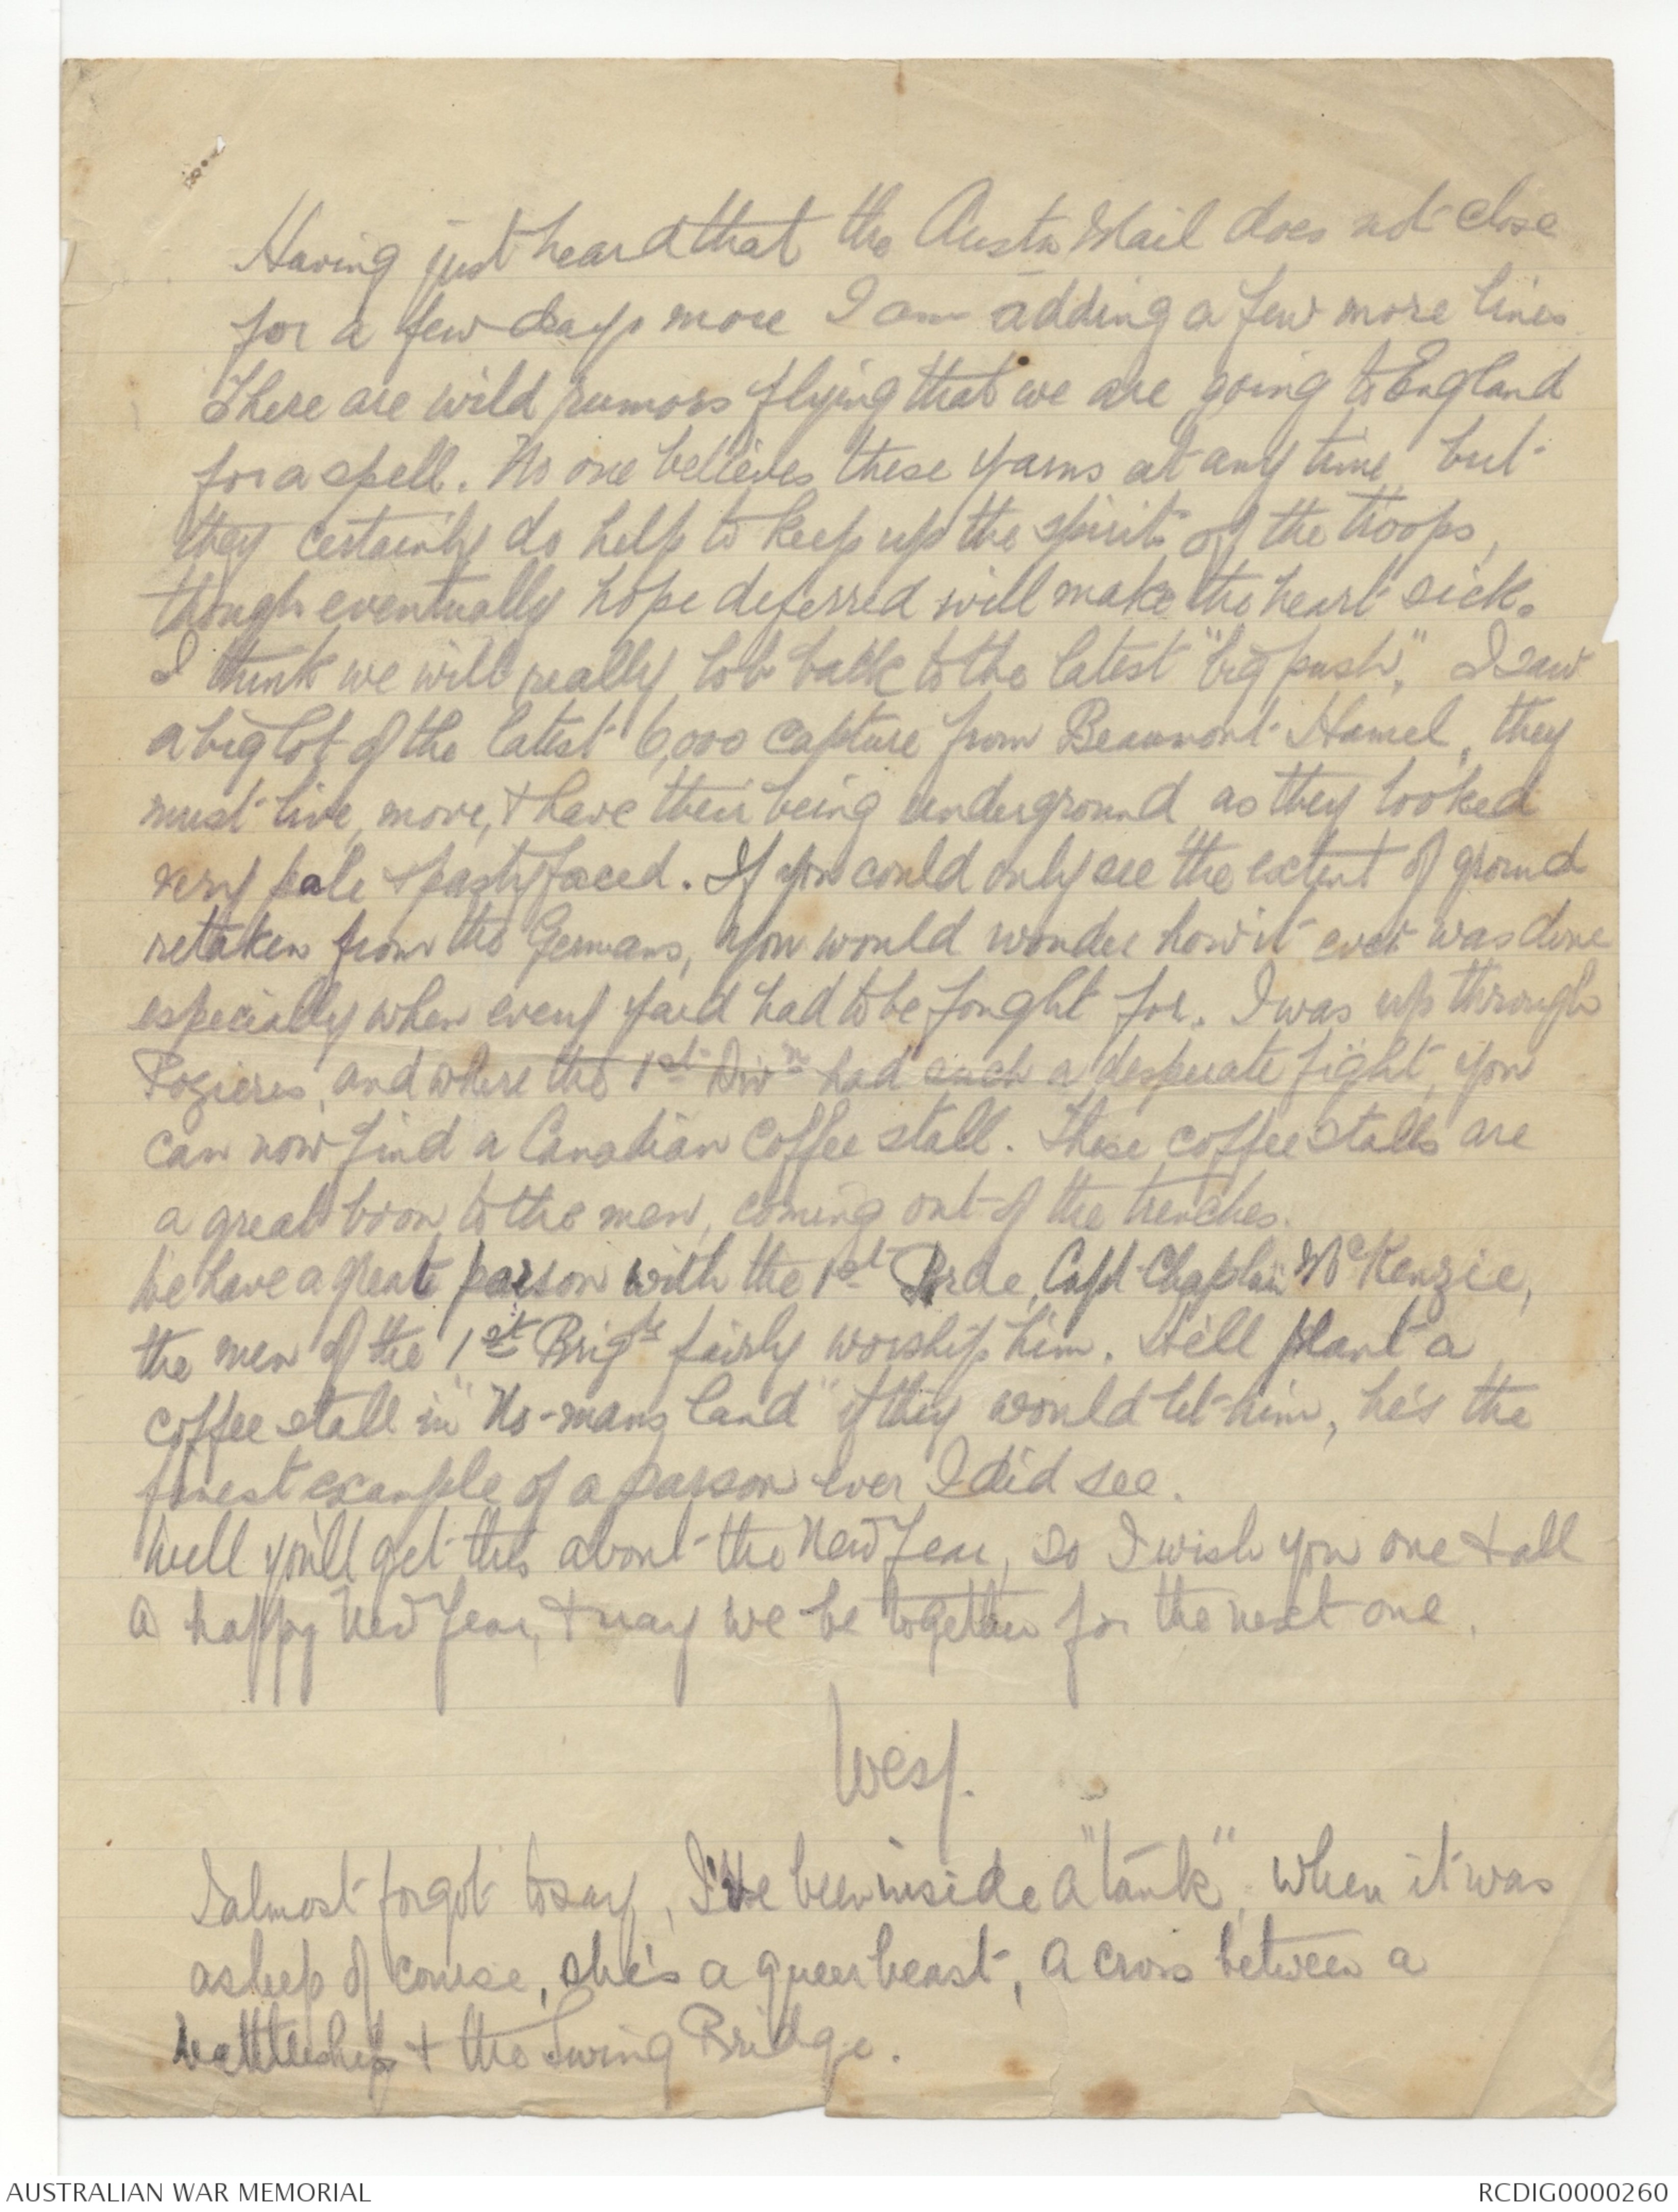 Having just heard that the Austn Mail does not close
for a few days more I am adding a few more lines
There are wild rumors flying that we are going to England
for a spell. No one believes these yarns at any time, but
they certainly do help to keep up the spirits of the troops,
though eventually hope deferred will make the heart sick.
I think we will really lob back to the latest "big push." I saw
a big lot of the latest 6,000 capture from Beaumont-Hamel, they
must live, move, & have their being underground as they looked
very pale & pasty faced. If you could only see the extent of ground
retaken from the Germans, you would wonder how it ever was done
especially when every yard had to be fought for. I was up through
Pozieres, and where the 1st Divn had such a desperate fight, you
can now find a Canadian coffee stall. These coffee stalls are
a great boon to the men, coming out of the trenches.
We have a great parson with the 1st Brde, Capt-Chaplain McKenzie,
the men of the 1st Brigde fairly worship him. He'll plant a
coffee stall in "No-mans land" if they would let him, he's the
finest example of a parson ever I did see.
Well you'll get this about the New Year, so I wish you one & all
a happy New Year, & may we be together for the next one.
Wesy.
I almost forgot to say, I've been inside a "tank", when it was
asleep of course, she's a queer beast, a cross between a
battleship & the Swing Bridge.
AUSTRALIAN WAR MEMORIAL
RCDIG0000260